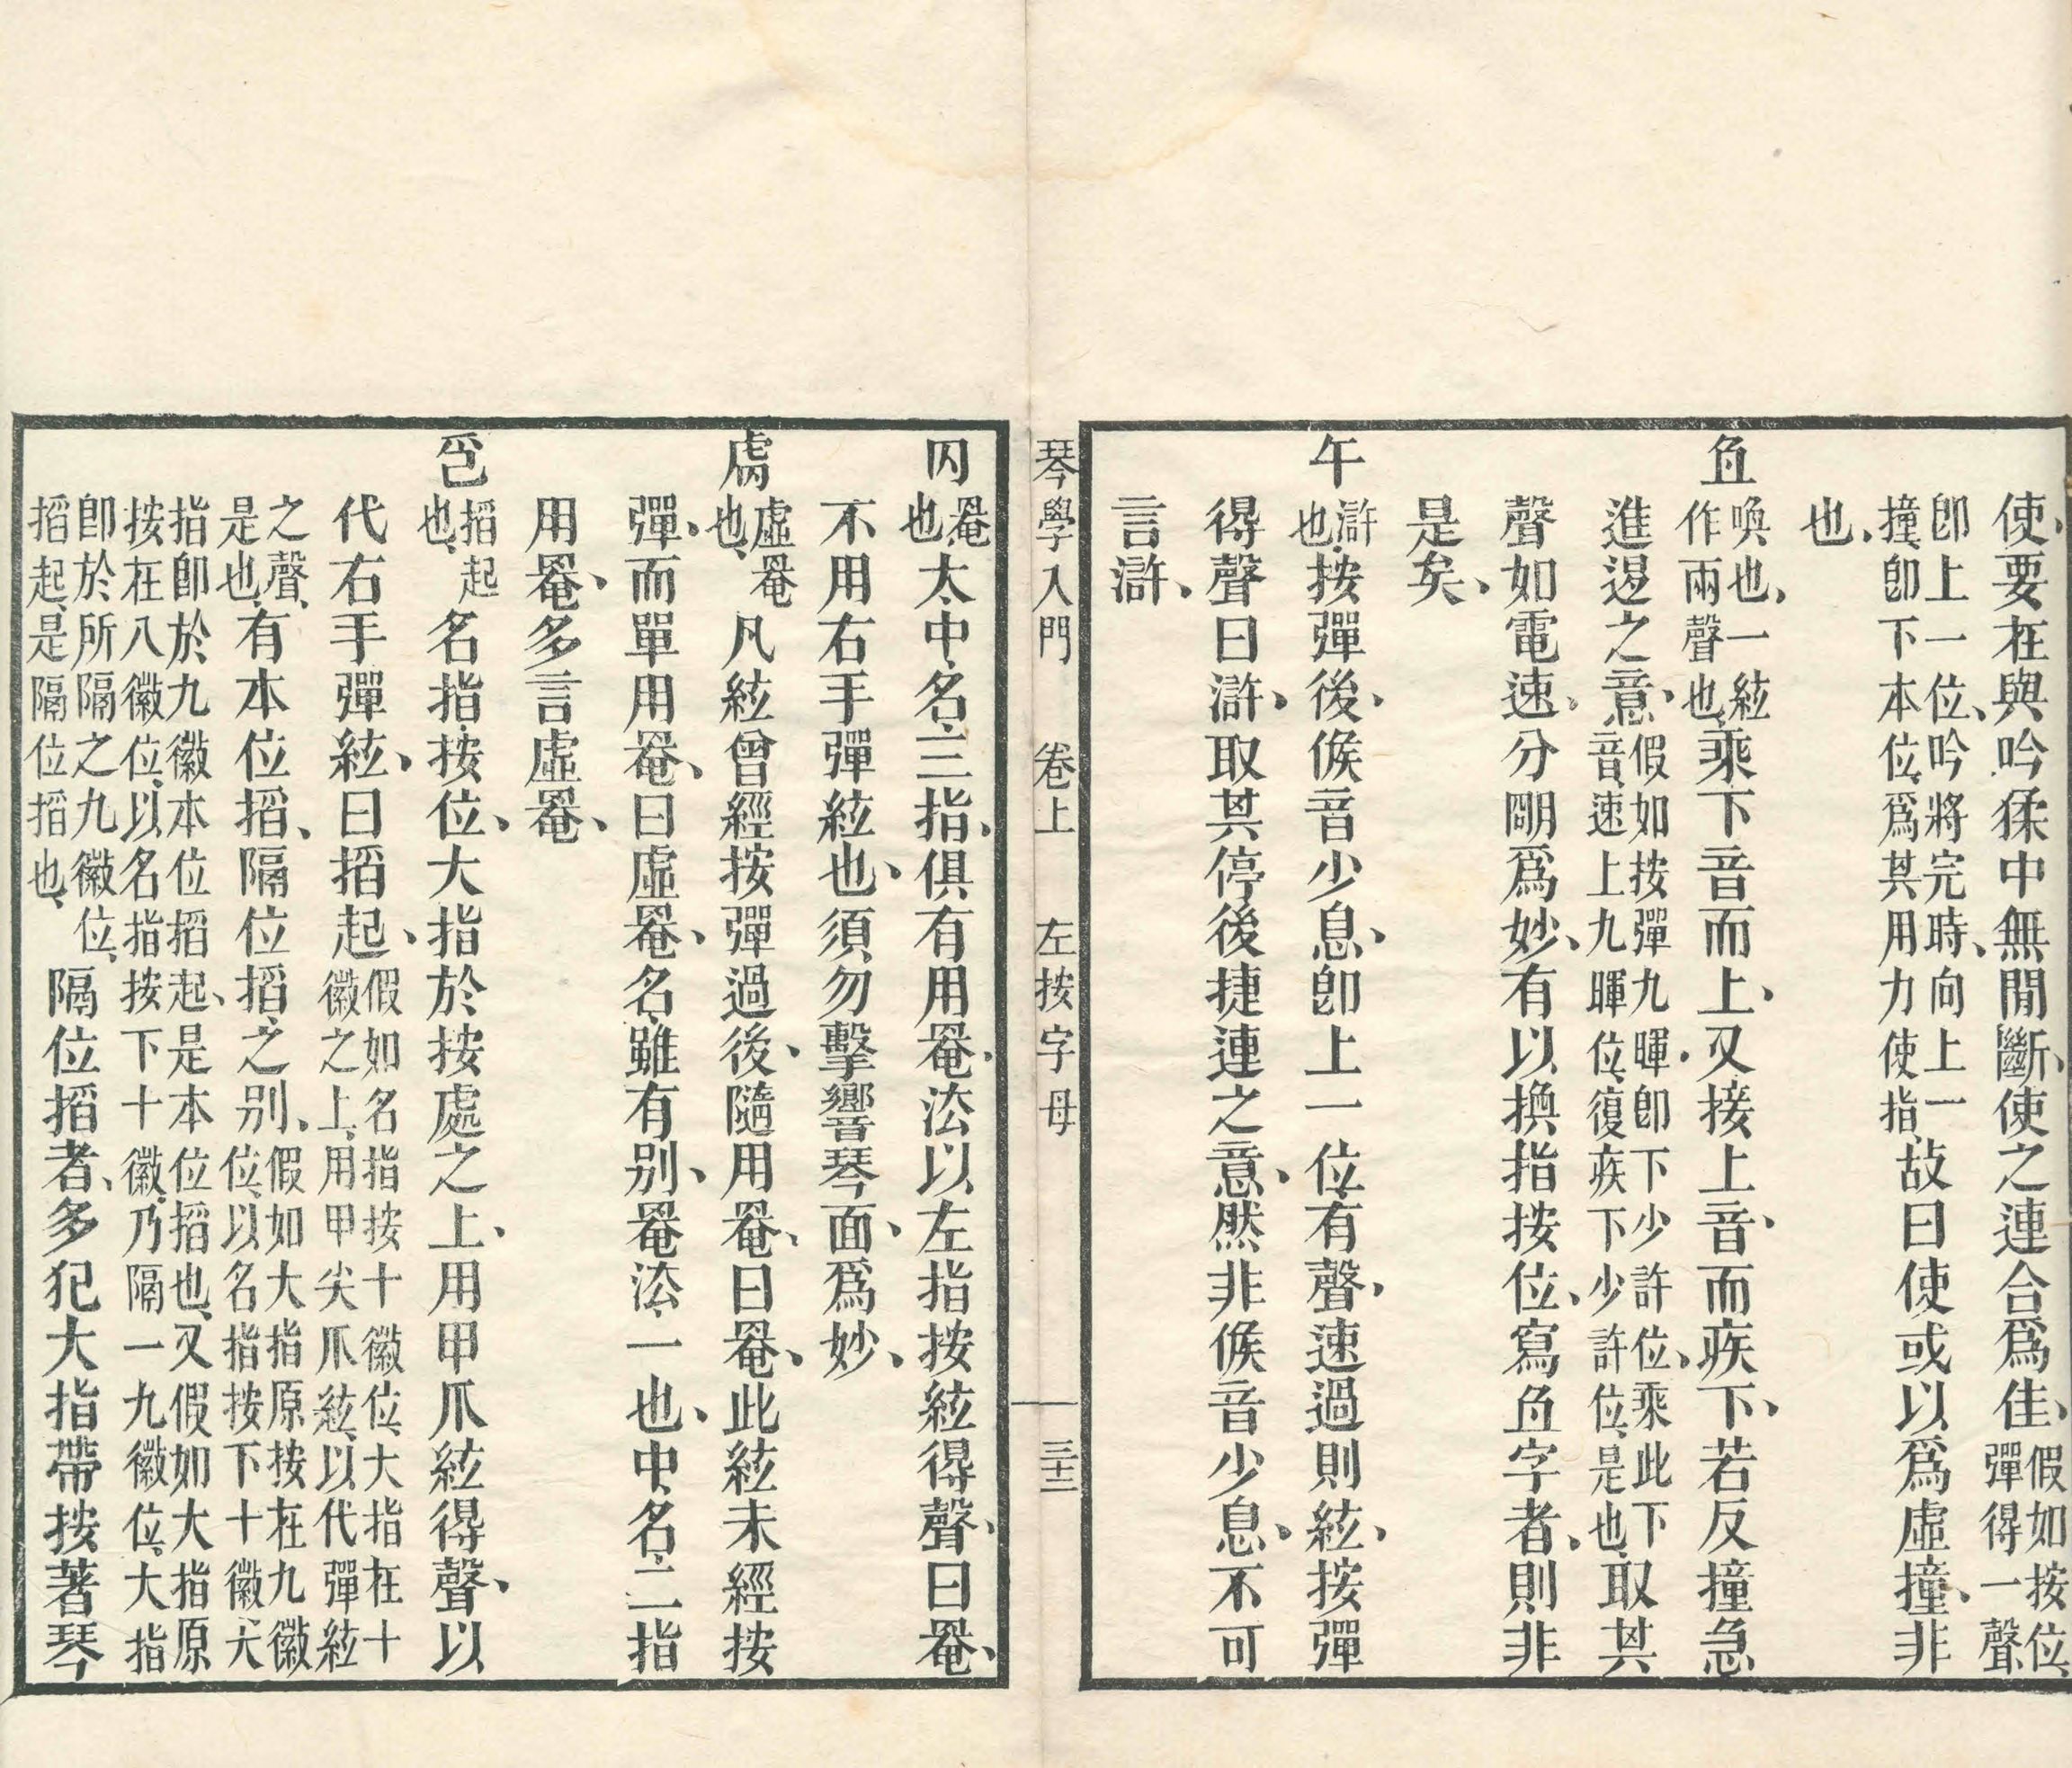 使、要在與吟猱中無閒斷、使之連合爲佳、假如按位、彈得一聲、
卽上一位、吟將完時、向上一撞、卽下本位、爲其用力使指、故曰使或以爲虛撞、非
也、
喚也、一絃作兩聲也、乘下音而上、又接上音、而疾下、若反撞急
進退之意、假如按彈九暉、卽下少許位、乘此下音、速上九暉位、復疾下少許位、是也、取其
聲如電速、分朙爲妙、有以換指按位、寫字者、則非
是矣、
午 滸也、按彈後、候音少息、卽上一位、有聲、速過則絃、按彈
得聲曰滸、取其停後捷連之意、然非候音少息、不可
言滸、
琴學入門 卷上 左按字母 三十二
罨也、大、中、名、三指、俱有用罨、法以左指按絃得聲、曰罨、
不用右手彈絃也、須勿擊響琴面、爲妙、
虛罨也、凡絃曾經按彈過後、隨用罨、曰罨、此絃未經按
彈、而單用罨、曰虛罨、名雖有別、罨法、一也、中、名、二指
用罨、多言虛罨、
搯起也、名指、按位、大指於按處之上、用甲爪絃得聲、以
代右手彈絃、曰搯起、假如名指按十徽位、大指在十徽之上、用甲尖爪絃、以代彈絃
之聲、是也、有本位搯、隔位搯、之別、假如大指原按在九徽位、以名指按下十徽、大
指卽於九徽本位搯起、是本位搯也、又假如大指原按在八徽位、以名指按下十徽、乃隔一九徽位、大指
卽於所隔之九徽位、搯起、是隔位搯也、隔位搯者、多犯大指帶按著琴